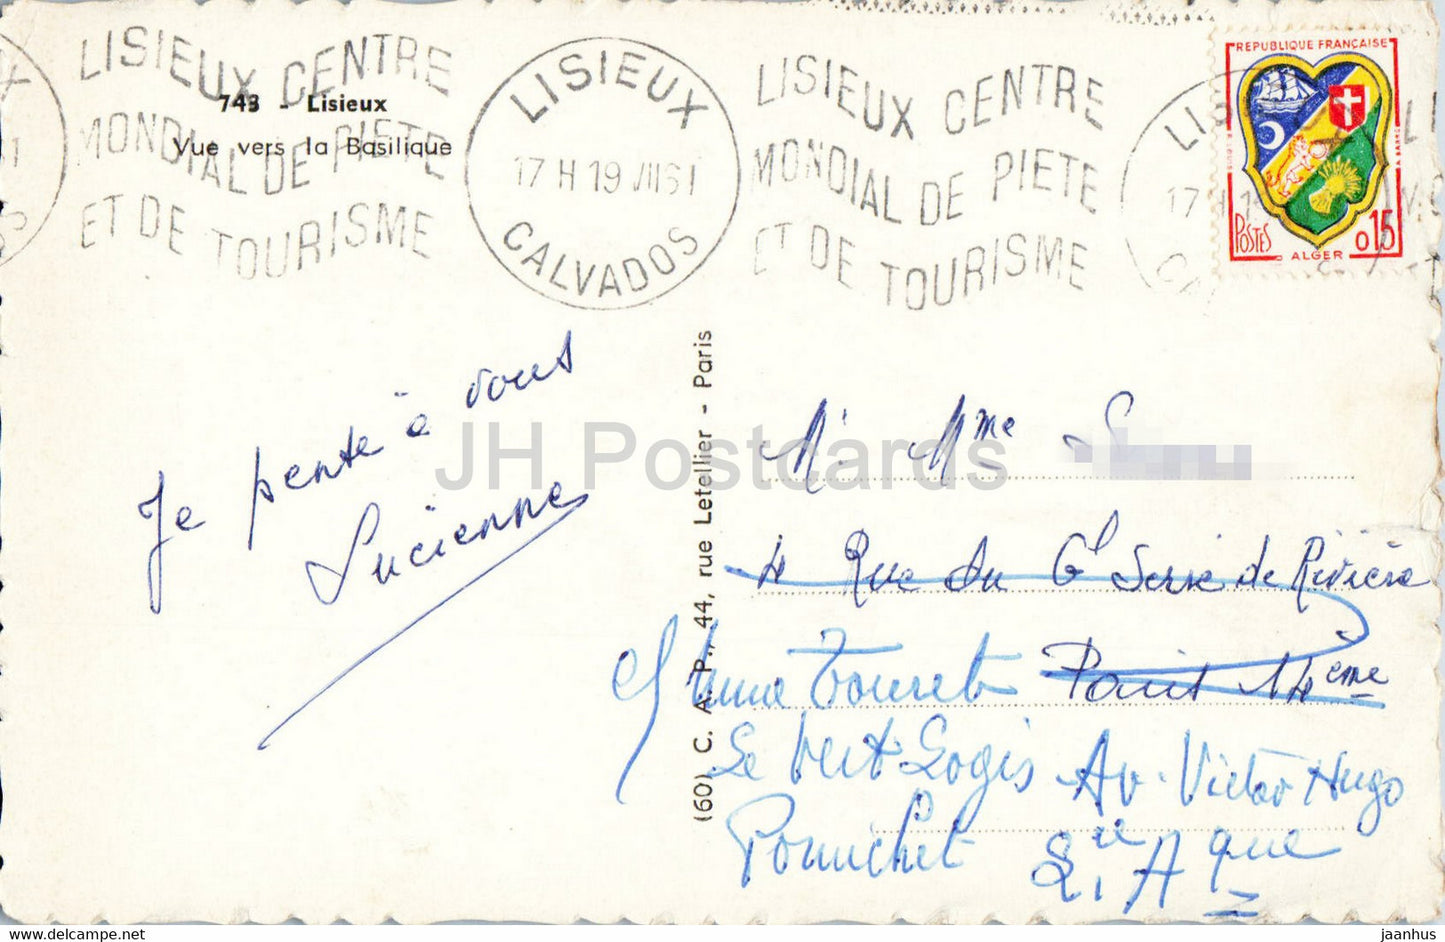 LISIEUX CENTRE
MONDIAL DE PIETE
ET DE TOURISME
743 - Lisieux
Vue vers la Basilique
LISIEUX
17 H 19 VII 61
CALVADOS
LISIEUX CENTRE
MONDIAL DE PIETE
ET DE TOURISME
REPUBLIQUE FRANÇAISE
POSTES
0,15
ALGER
Je pense à vous
Lucienne
(60) C. A. P., 44, rue Letellier - Paris
JH Postcards
M. Mme
4 Rue du Gl Serré de Rivière
Paris 14eme
Mme Touret
Le Vert Logis Av. Victor Hugo
Pornichet
Lre Aque
jaanhus